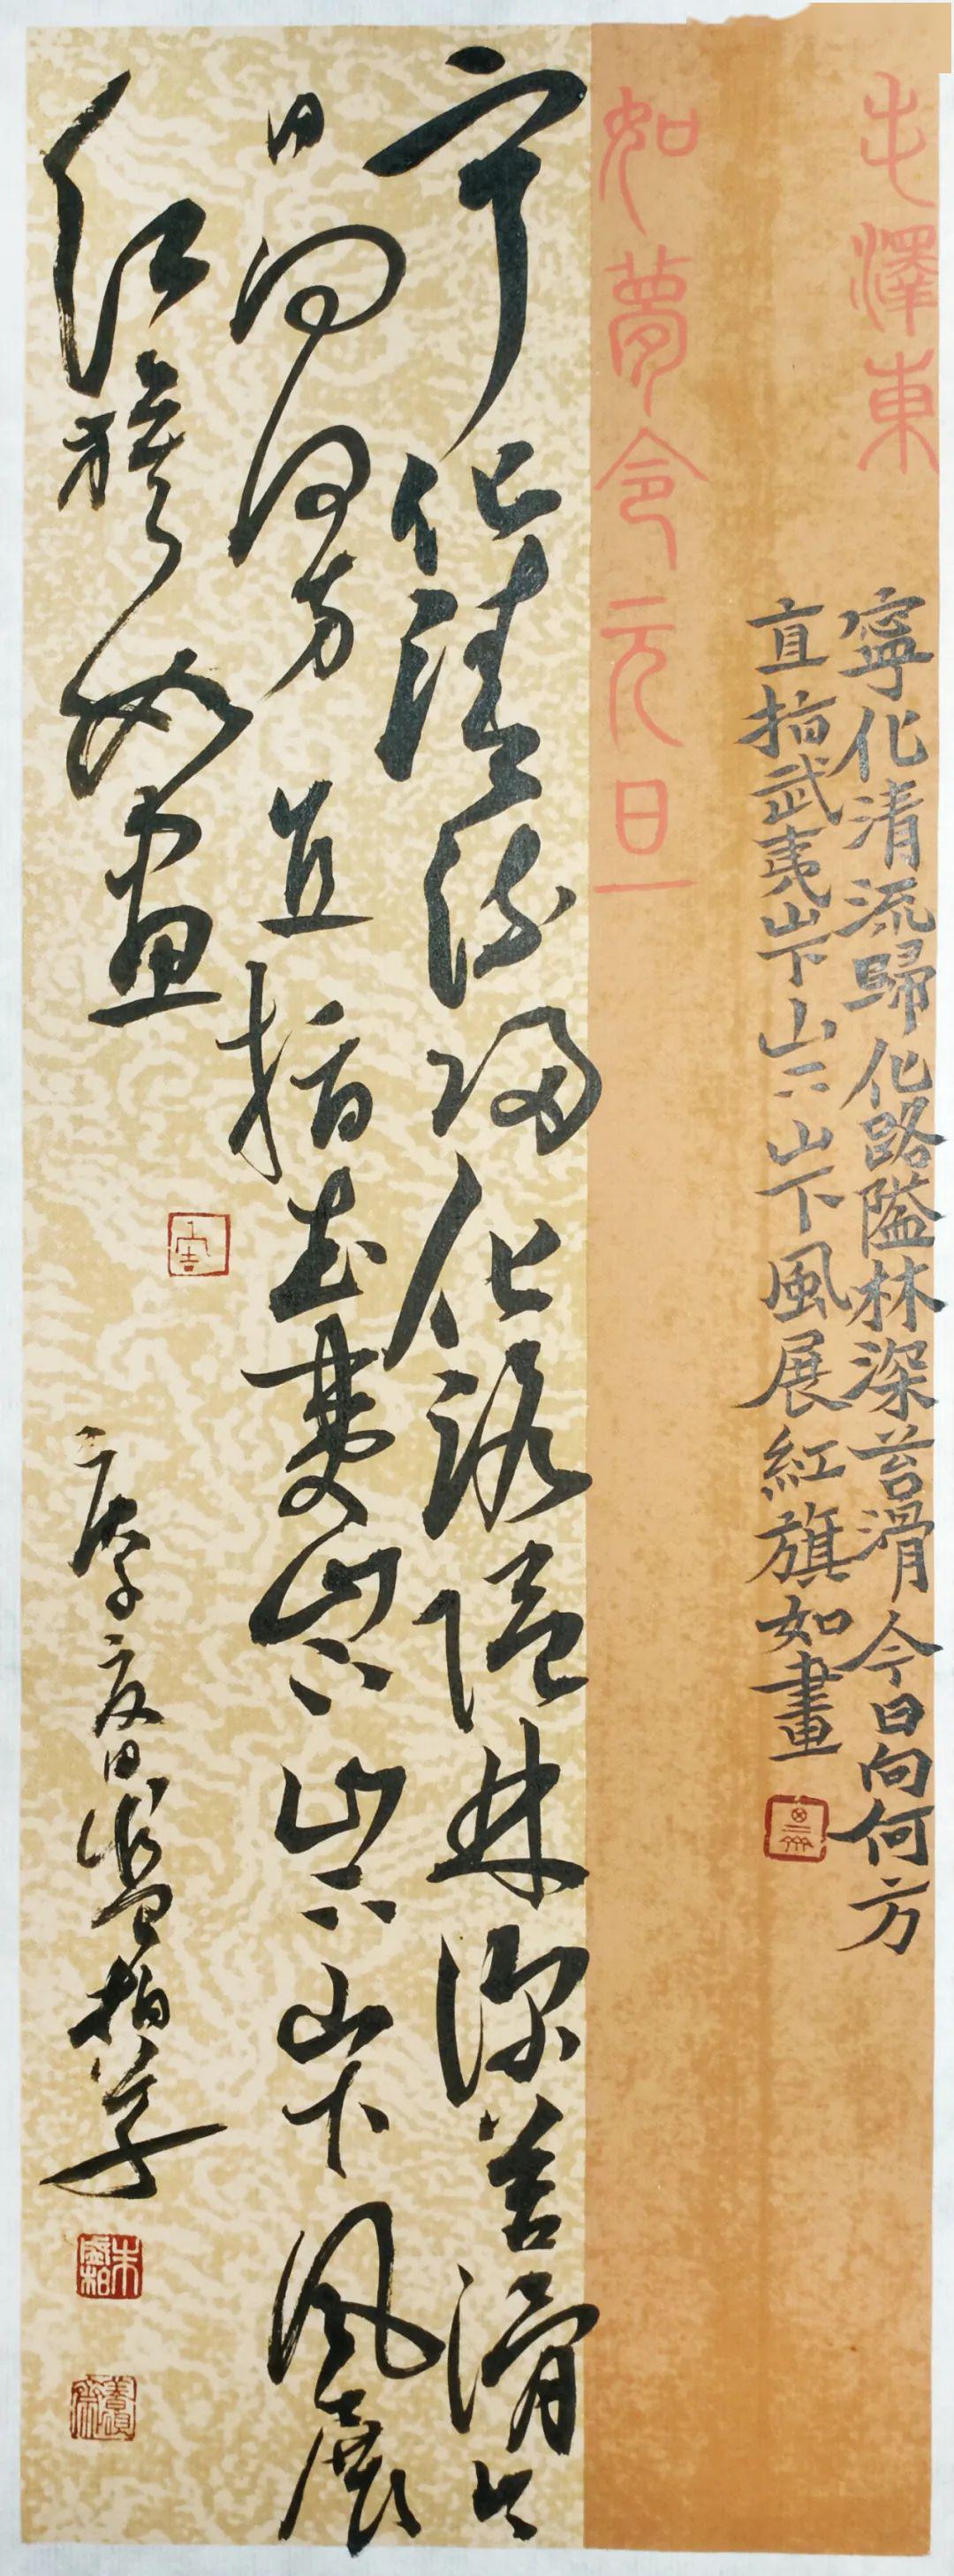 毛澤東
寧化清流歸化路隘林深苔滑今日向何方
直指武夷山下山下山下風展紅旗如畫
如夢令元旦
宁化清流归化路隘林深苔滑今
日向何方直指武夷山下山下山下风展
红旗如画
庚子夏日柏草